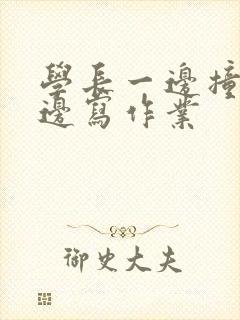 學長一邊撞
邊寫作業
御史大夫